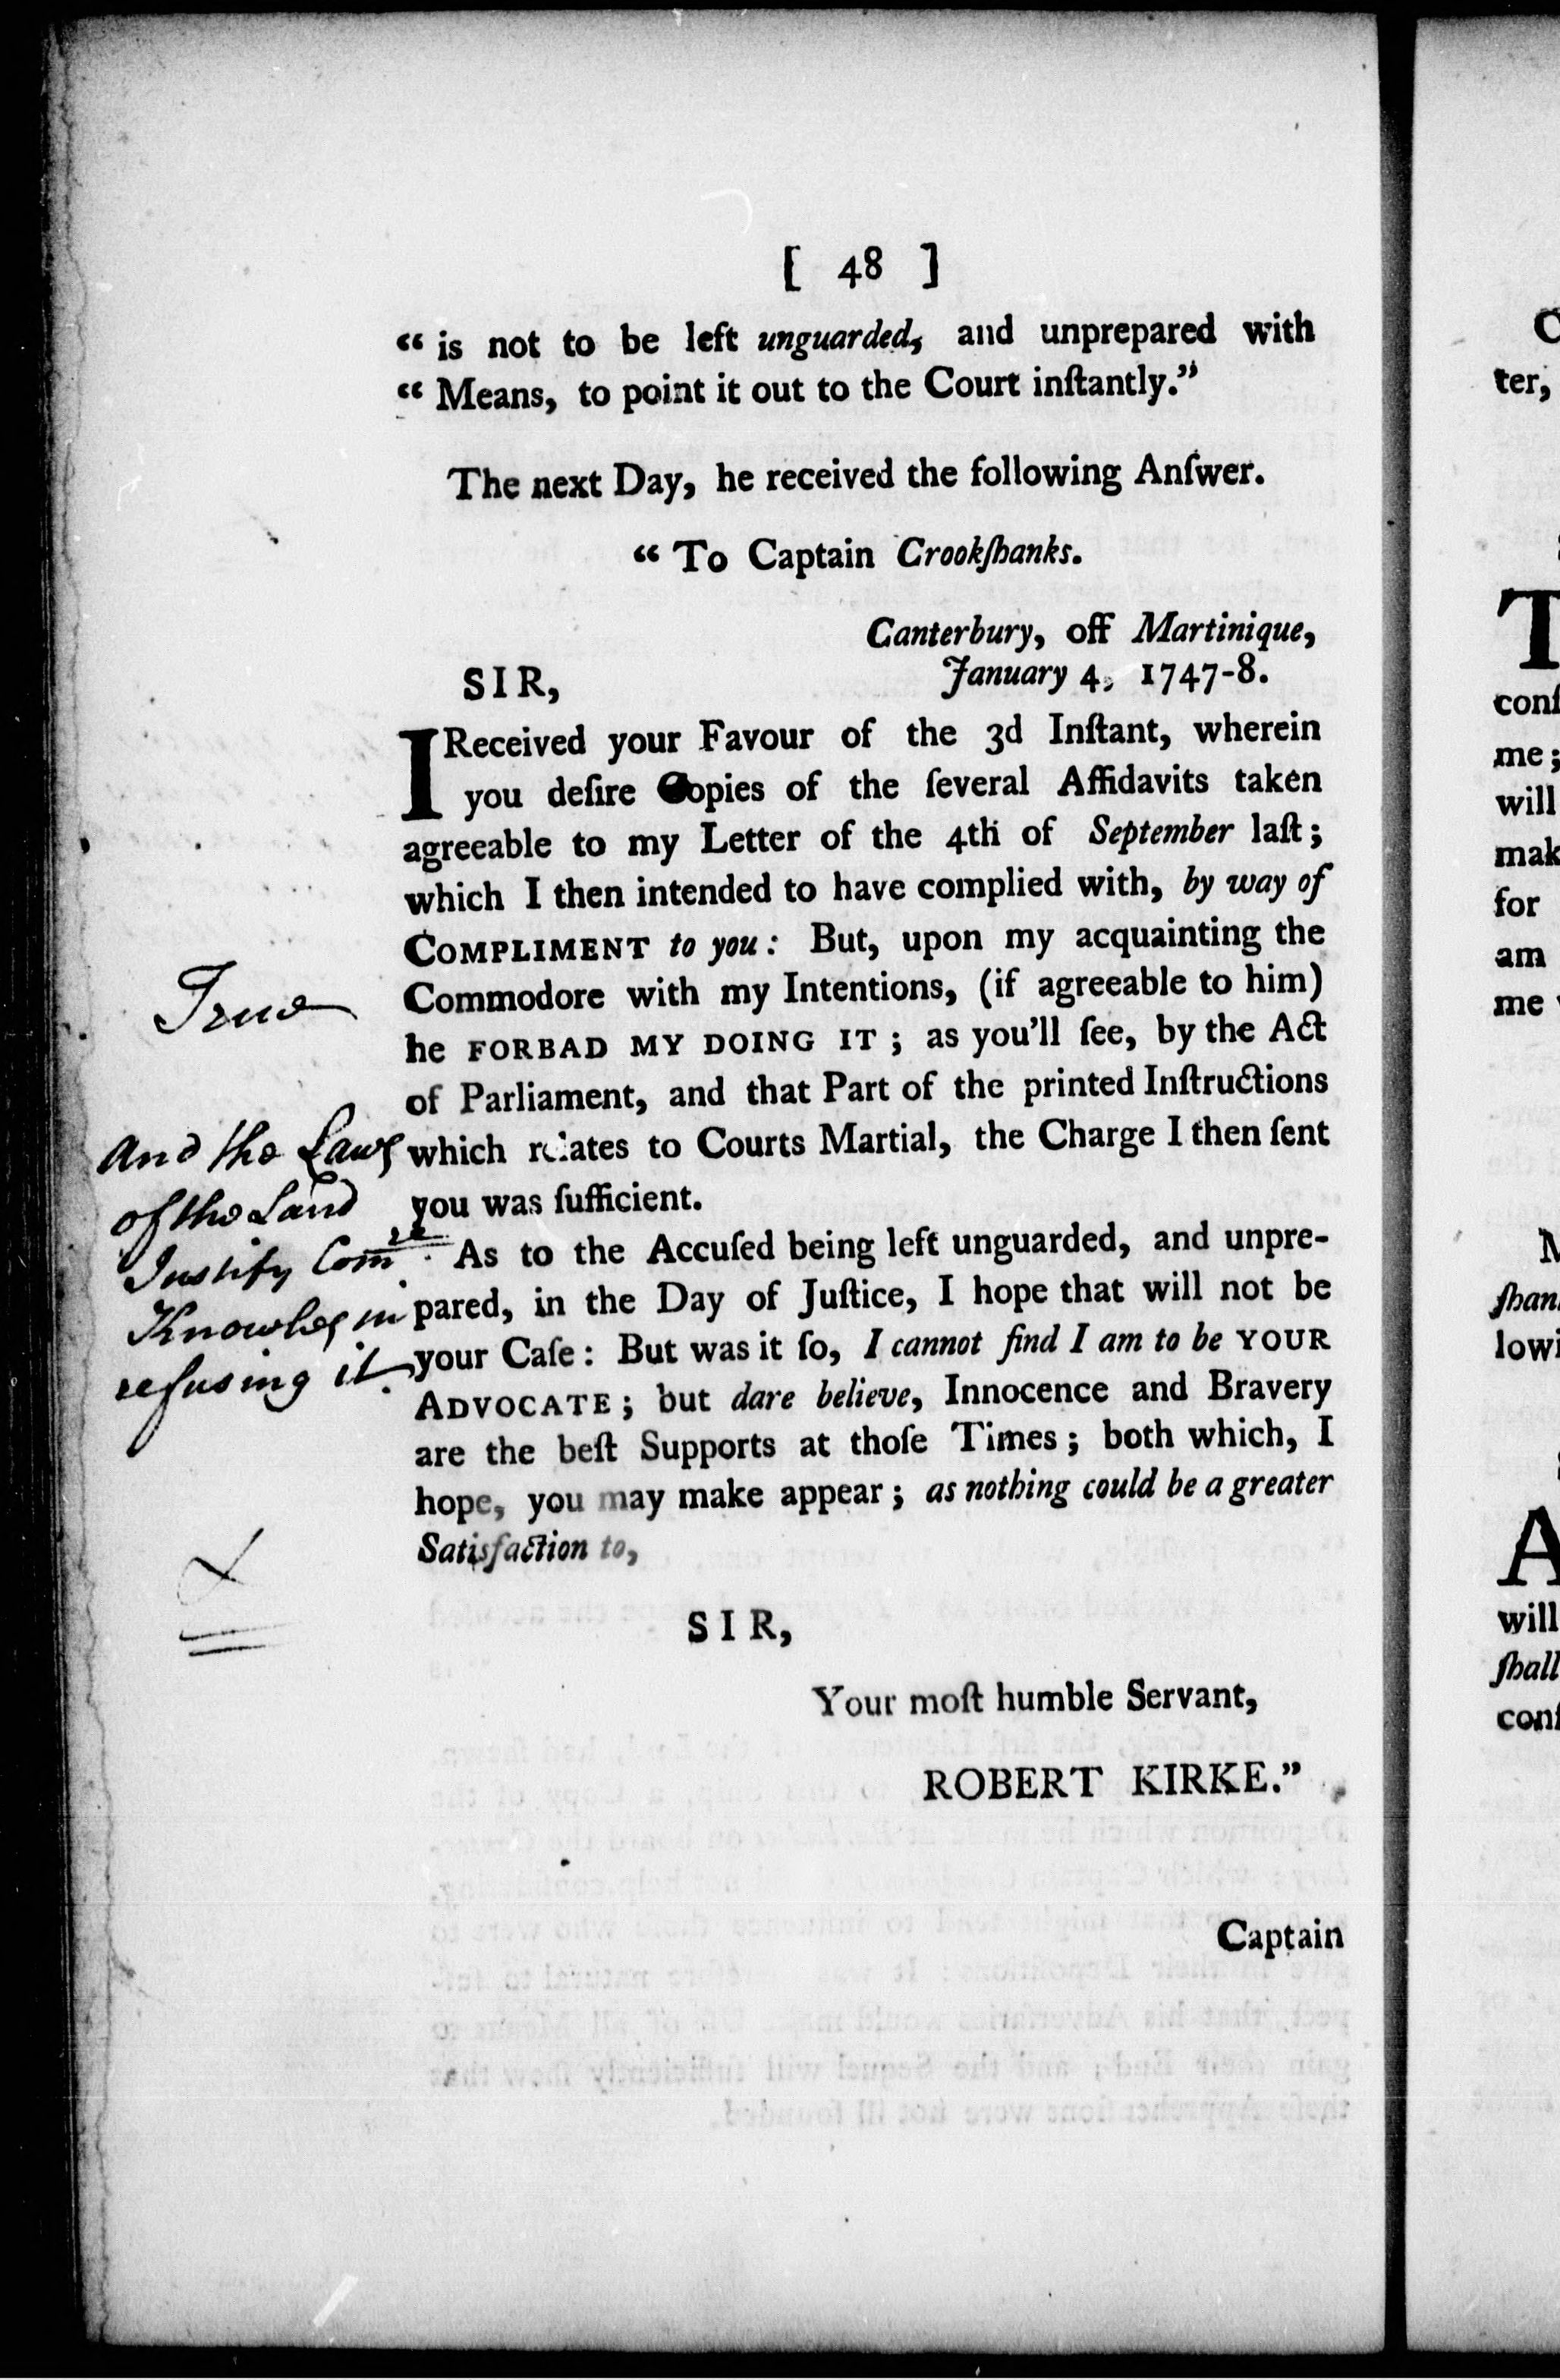 [ 48 ]
“ is not to be left unguarded, and unprepared with
“ Means, to point it out to the Court inſtantly.”
The next Day, he received the following Anſwer.
“ To Captain Crookſhanks.
Canterbury, off Martinique,
January 4, 1747-8.
SIR,
I Received your Favour of the 3d Inſtant, wherein
you deſire Copies of the ſeveral Affidavits taken
agreeable to my Letter of the 4th of September laſt;
which I then intended to have complied with, by way of
COMPLIMENT to you: But, upon my acquainting the
Commodore with my Intentions, (if agreeable to him)
he FORBAD MY DOING IT; as you'll ſee, by the Act
of Parliament, and that Part of the printed Inſtructions
which relates to Courts Martial, the Charge I then ſent
you was ſufficient.
As to the Accuſed being left unguarded, and unpre-
pared, in the Day of Juſtice, I hope that will not be
your Caſe: But was it ſo, I cannot find I am to be YOUR
ADVOCATE; but dare believe, Innocence and Bravery
are the beſt Supports at thoſe Times; both which, I
hope, you may make appear; as nothing could be a greater
Satisfaction to,
SIR,
Your moſt humble Servant,
ROBERT KIRKE.”
Captain
True
and the Laws
of the Land
Justify Com.re
Knowles in
refusing it.
C
ter,
T
conſ
me;
will
mak
for
am
me
ſhan
lowi
A
will
ſhall
conſ